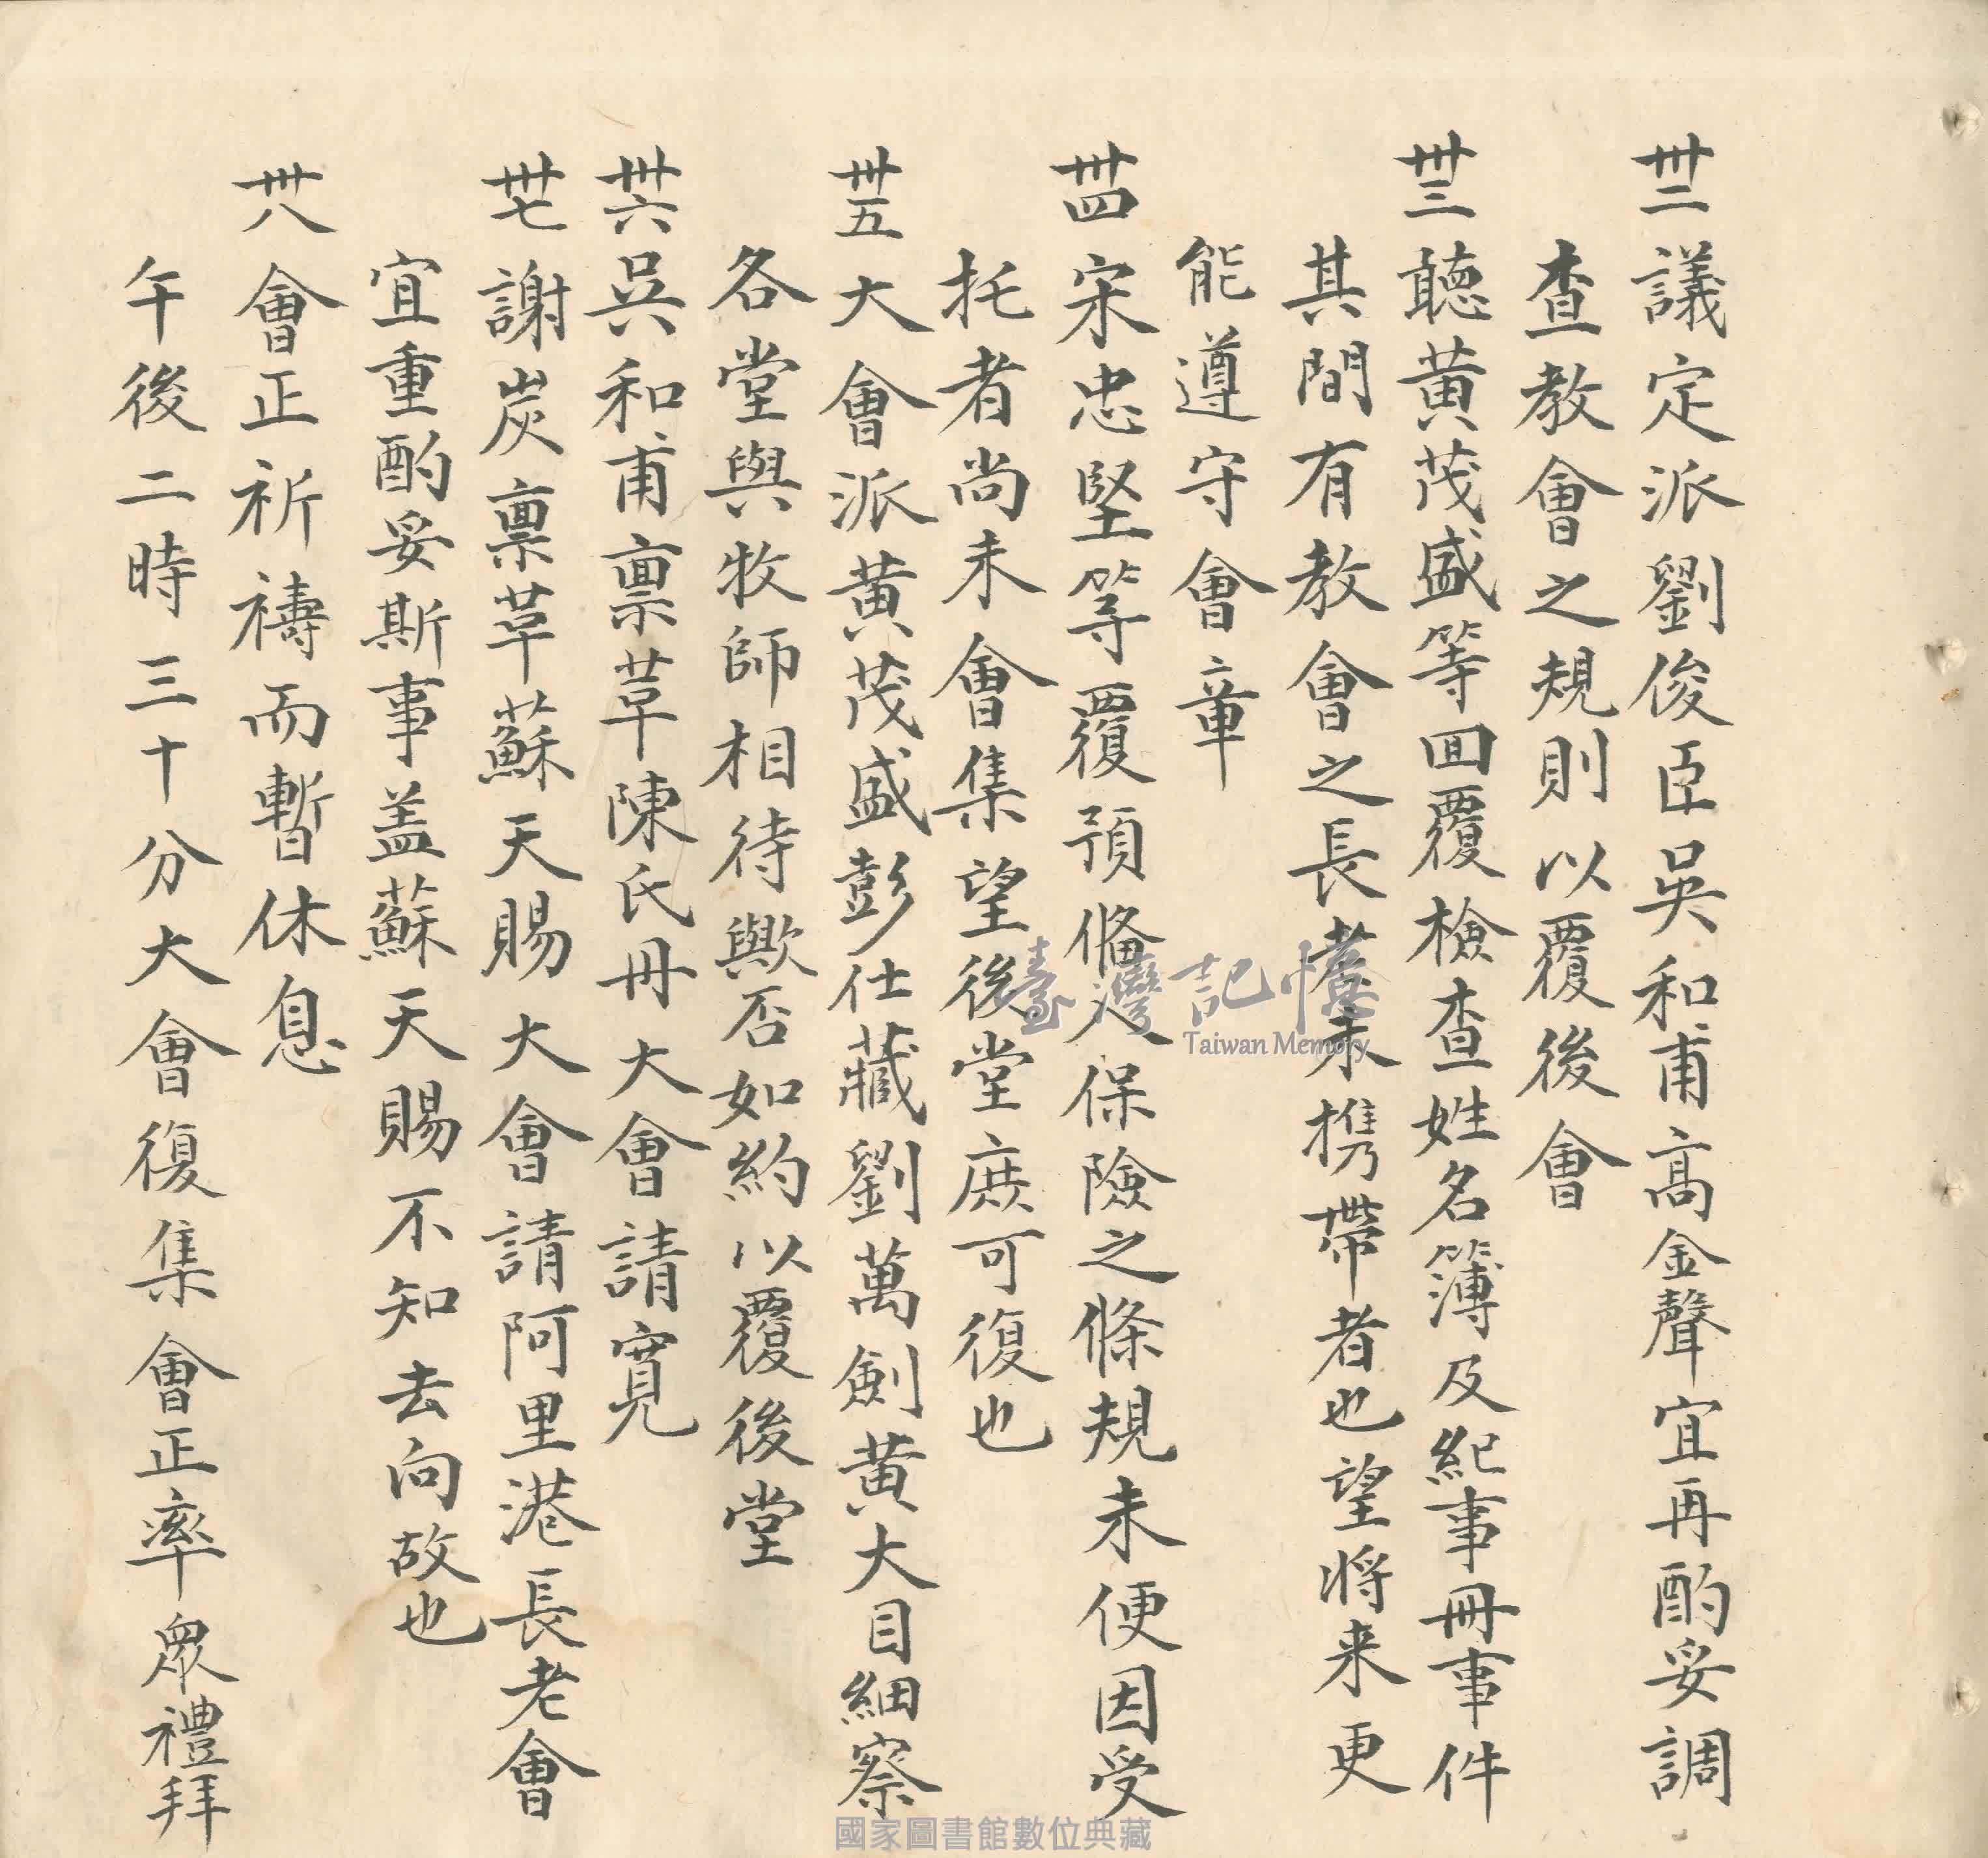 卅二議定派劉俊臣吳和甫高金聲宜再酌妥調
查教會之規則以覆後會
卅三聽黃茂盛等回覆檢查姓名簿及紀事冊事件
其間有教會之長老未携帶者也望將来更
能遵守會章
卅四宋忠堅等覆預備人保險之條規未便因受
托者尚未會集望後堂庶可復也
卅五大會派黃茂盛彭仕藏劉萬劍黃大目細察
各堂與牧師相待歟否如約以覆後堂
卅六吳和甫稟草陳氏冊大會請寬
卅七謝炭稟草蘇天賜大會請阿里港長老會
宜重酌妥斯事盖蘇天賜不知去向故也
卅八會正祈禱而暫休息
午後二時三十分大會復集會正率眾禮拜
臺灣記憶
Taiwan Memory
國家圖書館數位典藏